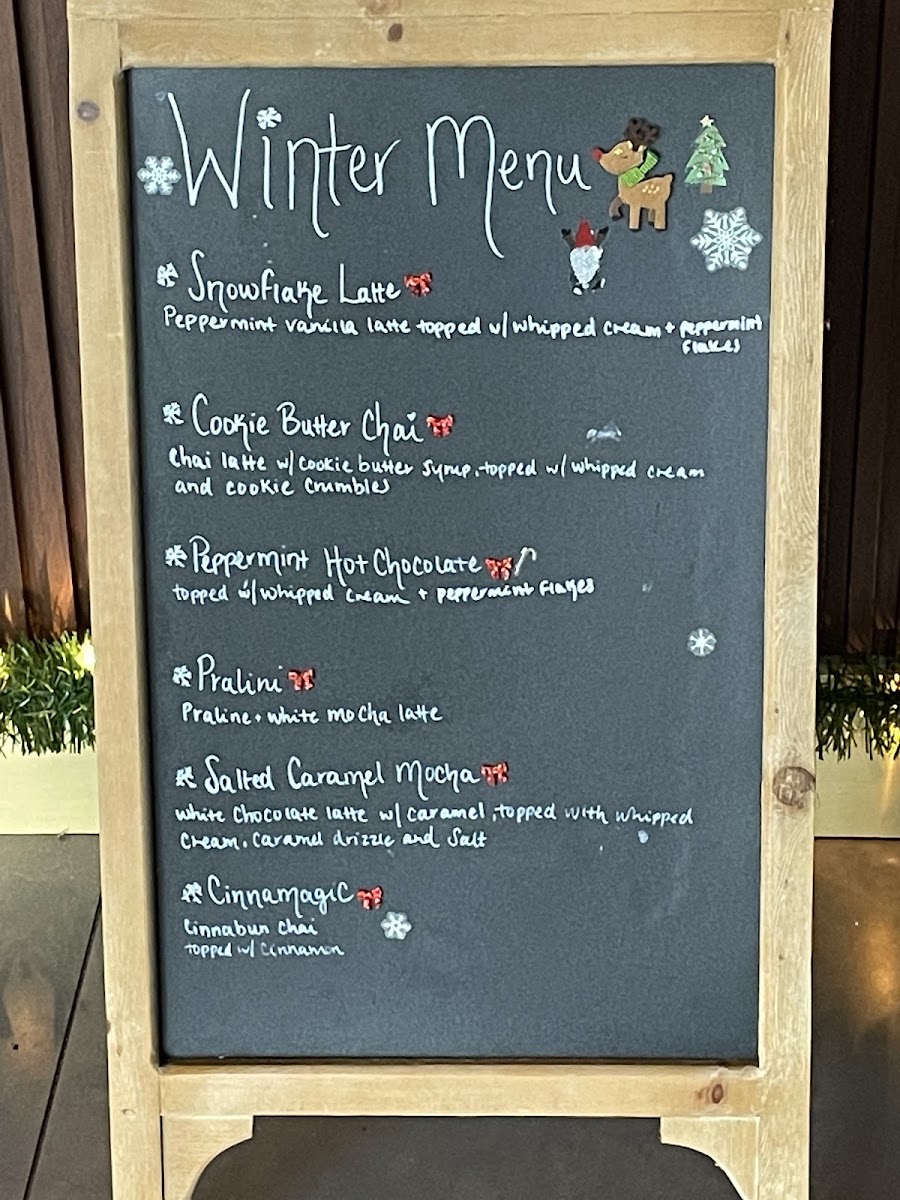 Winter Menu
Snowflake Latte
Peppermint vanilla latte topped w/ whipped cream + peppermint
flakes
Cookie Butter Chai
Chai latte w/ cookie butter syrup, topped w/ whipped cream
and cookie crumbles
Peppermint Hot Chocolate
topped w/ whipped cream + peppermint flakes
Pralini
Praline + white mocha latte
Salted Caramel Mocha
White chocolate latte w/ caramel, topped with whipped
cream, caramel drizzle and salt
Cinnamagic
Cinnabun chai
topped w/ cinnamon